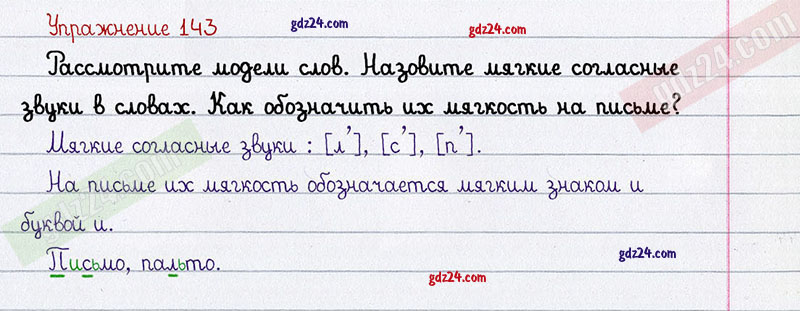 Упражнение 143
gdz24.com
gdz24.com
Рассмотрите модели слов. Назовите мягкие согласные
звуки в словах. Как обозначить их мягкость на письме?
Мягкие согласные звуки : [л'], [с'], [п'].
На письме их мягкость обозначается мягким знаком и
буквой и.
Письмо, пальто.
gdz24.com
gdz24.com
gdz24.com
gdz24.com